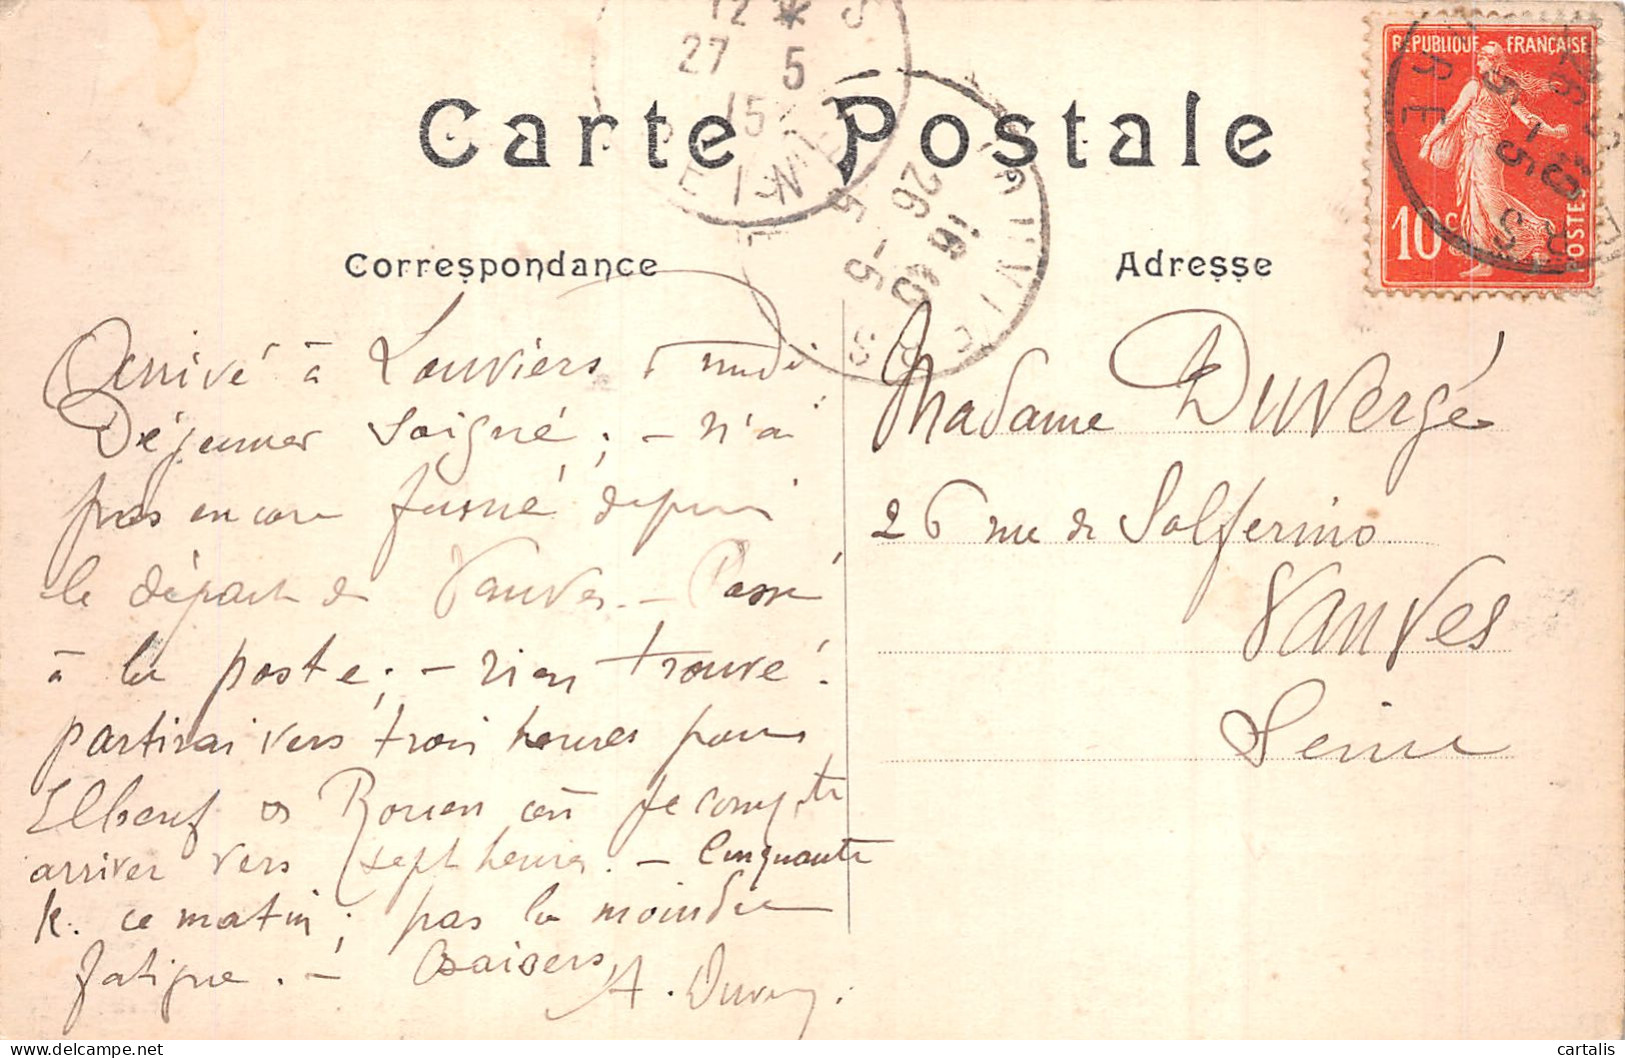 12 * S
27 5
15
Carte Postale
REPUBLIQUE FRANÇAISE
10c
POSTES
26 5
Correspondance
Adresse
Arrivé à Louviers à midi
Déjeuner soigné ; - n'ai
pas encore fumé depuis
le départ de Vanves. - Passé
à la poste ; - rien trouvé.
partirai vers trois heures pour
Elbeuf et Rouen où je compte
arriver vers sept heures. - Cinquante
k. ce matin ; pas la moindre
fatigue. - Baisers
A. Duverg.
Madame Duvergé
26 rue de Solferino
Vanves
Seine
cartalis